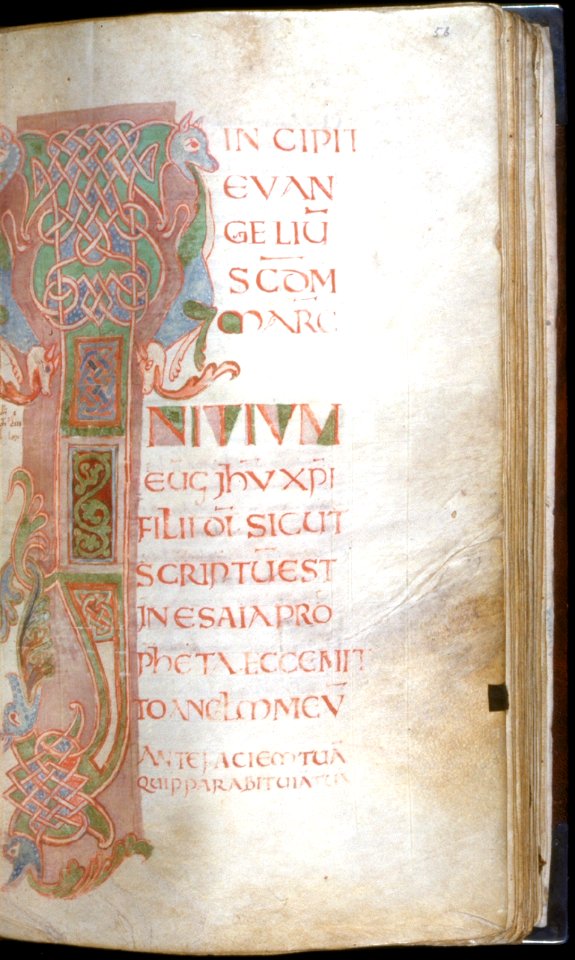 56
IN CIPIT
EVAN
GELIŪ
SCDM
MARC
INITIUM
EUG JHU XPI
FILII DI SICUT
SCRIPTŪ EST
IN ESAIA PRO
PHETA ECCE MIT
TO ANGLM MEŪ
ANTE FACIEM TUĀ
QUI PPARABIT UIA TUA